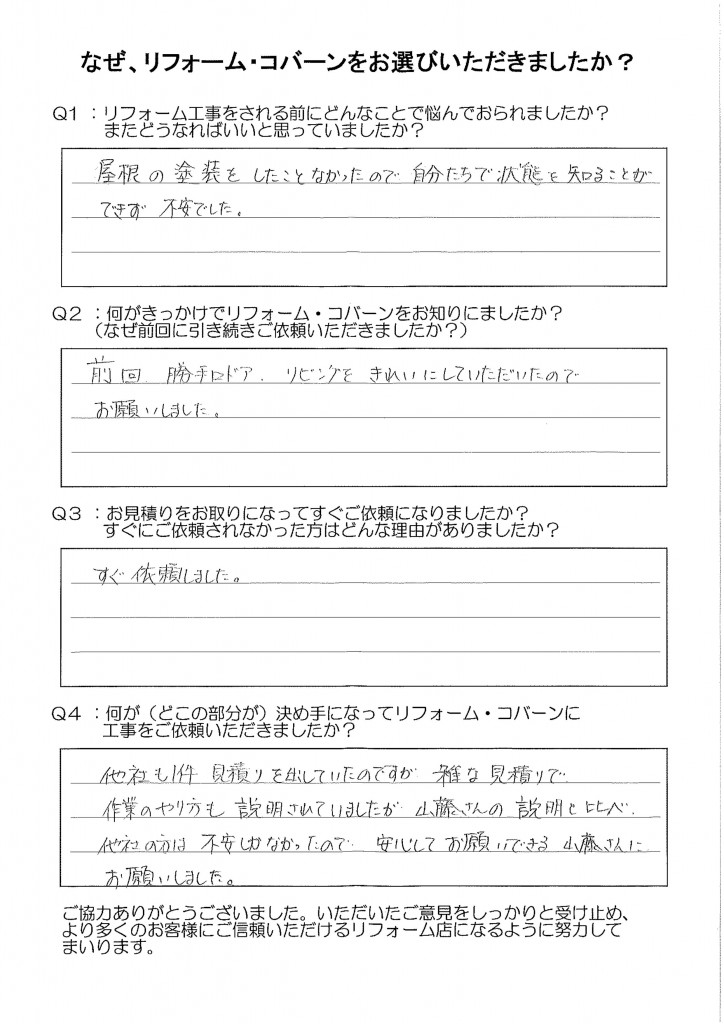 なぜ、リフォーム・コバーンをお選びいただきましたか？
Q1：リフォーム工事をされる前にどんなことで悩んでおられましたか？
またどうなればいいと思っていましたか？
屋根の塗装をしたことなかったので自分たちで状態を知ることが
できず 不安でした。
Q2：何がきっかけでリフォーム・コバーンをお知りにましたか？
（なぜ前回に引き続きご依頼いただきましたか？）
前回、勝手口ドア、リビングを きれいにしていただいたので
お願いしました。
Q3：お見積りをお取りになってすぐご依頼になりましたか？
すぐにご依頼されなかった方はどんな理由がありましたか？
すぐ依頼しました。
Q4：何が（どこの部分が）決め手になってリフォーム・コバーンに
工事をご依頼いただきましたか？
他社も1件 見積りを出していたのですが 雑な見積りで
作業のやり方も 説明されていましたが 山藤さんの説明と比べ
他社の方は 不安しかなかったので 安心してお願いできる山藤さんに
お願いしました。
ご協力ありがとうございました。いただいたご意見をしっかりと受け止め、
より多くのお客様にご信頼いただけるリフォーム店になるように努力して
まいります。